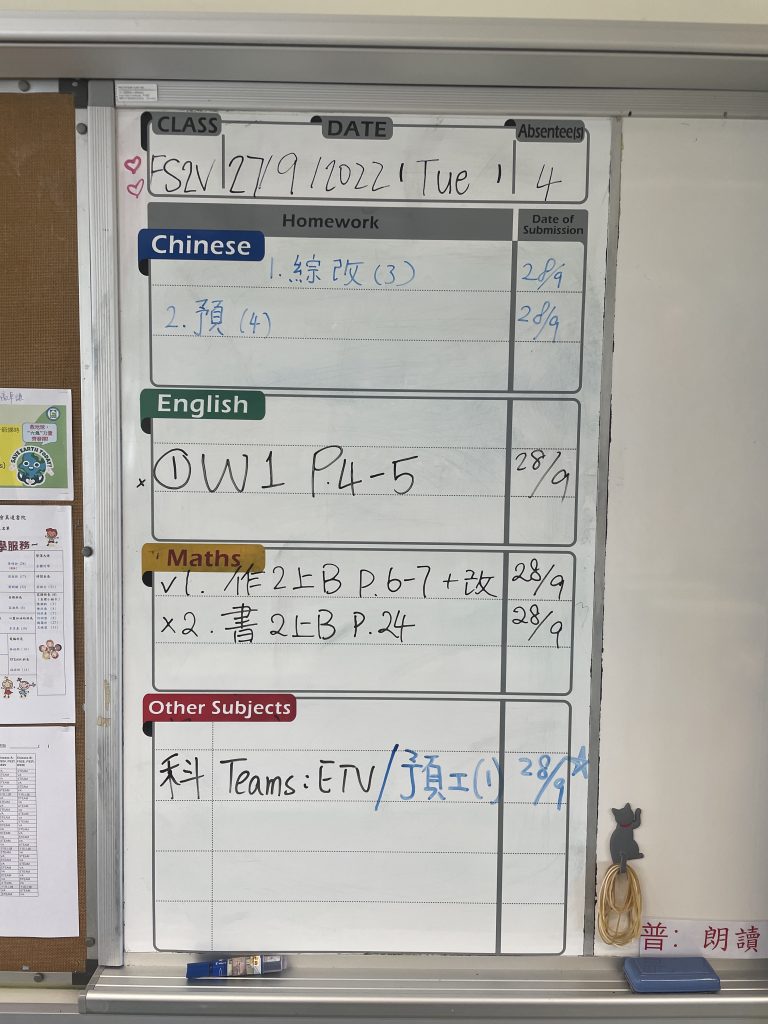 CLASS DATE Absentee(s)
FS2V 27/9/2022 ( Tue ) 4
Homework Date of Submission
Chinese
1. 綜改(3) 28/9
2. 預(4) 28/9
English
x ① W1 P.4-5 28/9
Maths
v1. 作2上B P.6-7+改 28/9
x2. 書2上B P.24 28/9
Other Subjects
科 Teams: ETV/預工(1) 28/9☆
SAVE EARTH TODAY!
學服務
普: 朗讀